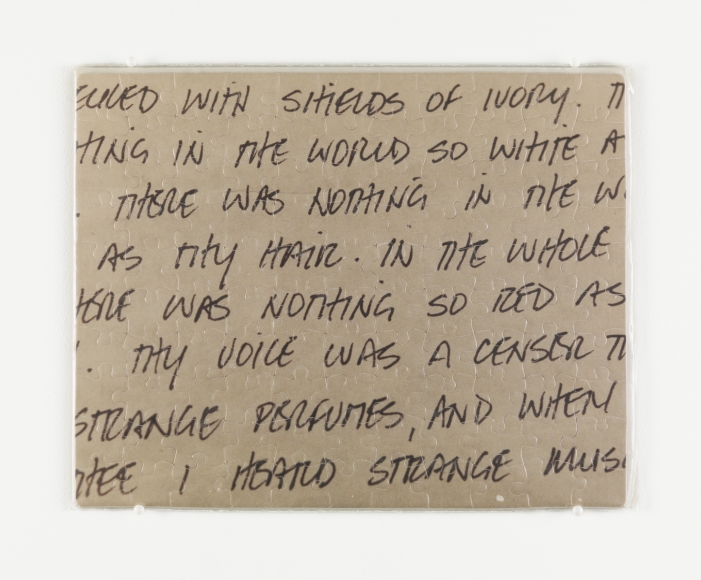 ECKED WITH SHIELDS OF IVORY. T
THING IN THE WORLD SO WHITE A
. THERE WAS NOTHING IN THE W
AS THY HAIR. IN THE WHOLE
HERE WAS NOTHING SO RED AS
. THY VOICE WAS A CENSER T
STRANGE PERFUMES, AND WHEN
THEE I HEARD STRANGE MUSI